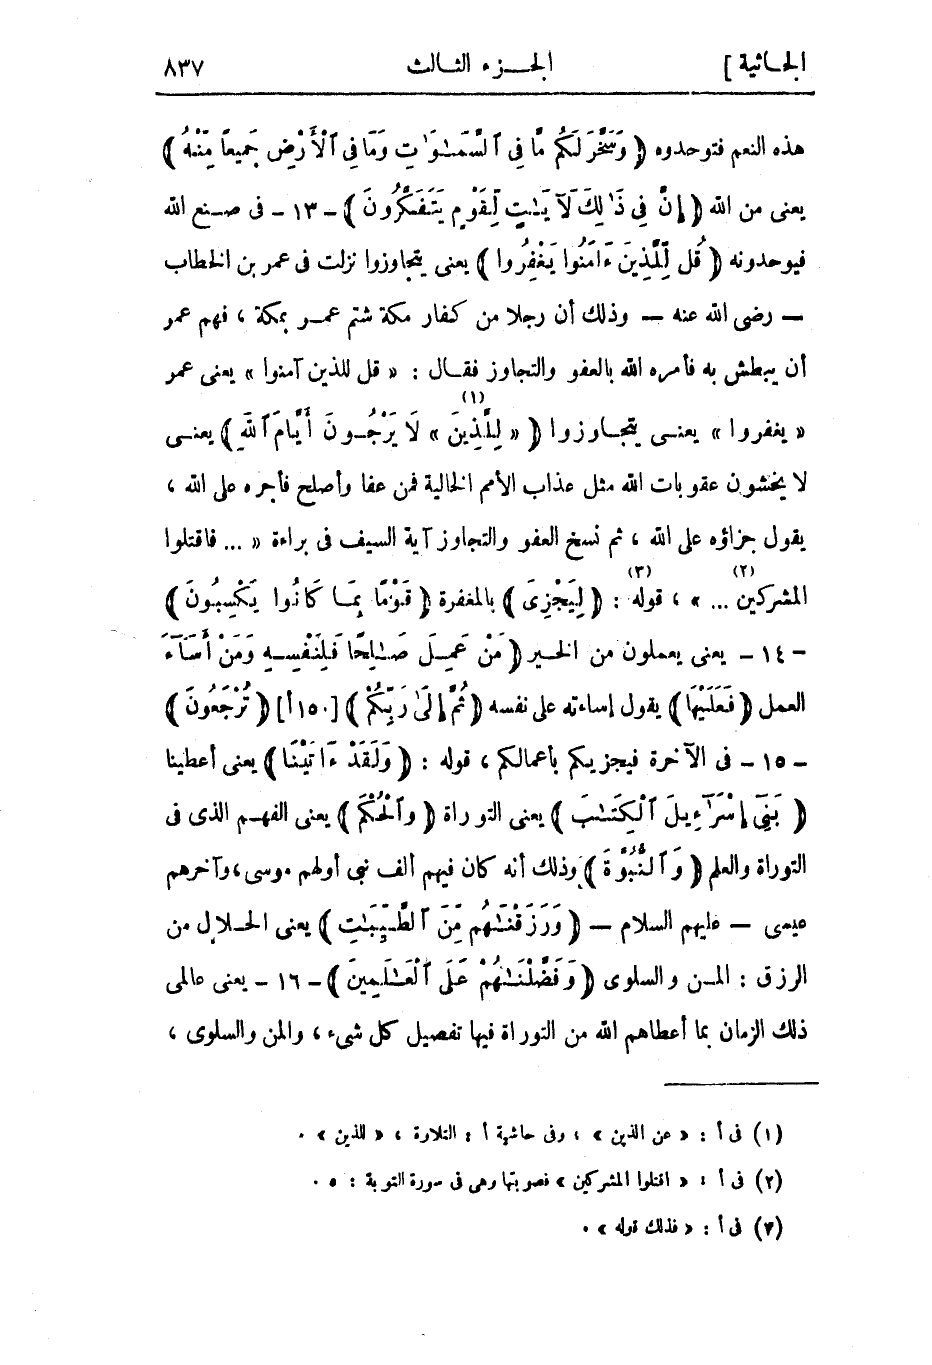 الجاثية ] الجزء الثالث ٨٣٧
هذه النعم فتوحدوه ( وَسَخَّرَ لَكُم مَّا فِى ٱلسَّمَـٰوَٰتِ وَمَا فِى ٱلْأَرْضِ جَمِيعًا مِّنْهُ )
يعنى من الله ( إِنَّ فِى ذَٰلِكَ لَآيَـٰتٍ لِّقَوْمٍ يَتَفَكَّرُونَ ) - ١٣ - فى صنع الله
فيوحدونه ( قُل لِّلَّذِينَ ءَامَنُوا يَغْفِرُوا ) يعنى يتجاوزوا نزلت فى عمر بن الخطاب
— رضى الله عنه — وذلك أن رجلا من كفار مكة شتم عمر بمكة ، فهم عمر
أن يبطش به فأمره الله بالعفو والتجاوز فقال : « قل للذين آمنوا » يعنى عمر
« يغفروا » يعنى يتجاوزوا ( « لِلَّذِينَ » (١) لَا يَرْجُونَ أَيَّامَ ٱللَّهِ ) يعنى
لا يخشون عقوبات الله مثل عذاب الأمم الخالية فمن عفا وأصلح فأجره على الله ،
يقول جزاؤه على الله ، ثم نسخ العفو والتجاوز آية السيف فى براءة « ... فاقتلوا
المشركين ... » (٢) ، قوله (٣) : ( لِيَجْزِىَ ) بالمغفرة ( قَوْمًا بِمَا كَانُوا يَكْسِبُونَ )
- ١٤ - يعنى يعملون من الخير ( مَنْ عَمِلَ صَـٰلِحًا فَلِنَفْسِهِ وَمَنْ أَسَآءَ
العمل ( فَعَلَيْهَا ) يقول إساءته على نفسه ( ثُمَّ إِلَىٰ رَبِّكُمْ ) [ ١٥٠ أ ] ( تُرْجَعُونَ )
- ١٥ - فى الآخرة فيجزيكم بأعمالكم ، قوله : ( وَلَقَدْ ءَاتَيْنَا ) يعنى أعطينا
( بَنِىٓ إِسْرَٰٓءِيلَ ٱلْكِتَـٰبَ ) يعنى التوراة ( وَٱلْحُكْمَ ) يعنى الفهم الذى فى
التوراة والعلم ( وَٱلنُّبُوَّةَ ) وذلك أنه كان فيهم ألف نبى أولهم موسى ، وآخرهم
عيسى — عليهم السلام — ( وَرَزَقْنَـٰهُم مِّنَ ٱلطَّيِّبَـٰتِ ) يعنى الحلال من
الرزق : المن والسلوى ( وَفَضَّلْنَـٰهُمْ عَلَى ٱلْعَـٰلَمِينَ ) - ١٦ - يعنى عالمى
ذلك الزمان بما أعطاهم الله من التوراة فيها تفصيل كل شىء ، والمن والسلوى ،
(١) فى أ : « عن الذين » ، وفى حاشية أ : التلاوة ، « للذين » .
(٢) فى أ : « اقتلوا المشركين » فصوبتها وهى فى سورة التوبة : ٥ .
(٣) فى أ : « فذلك قوله » .